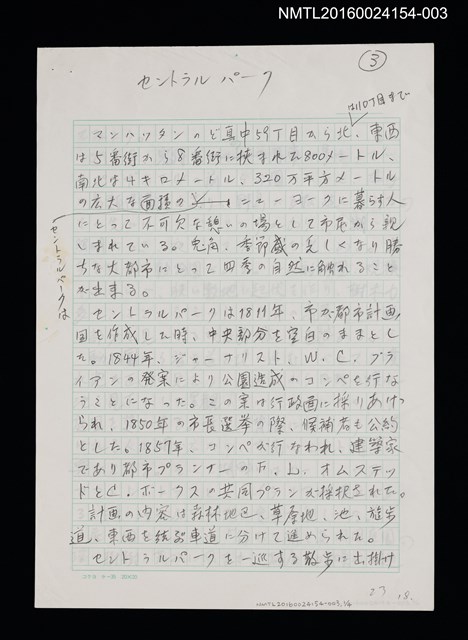 NMTL20160024154-003
③
セントラルパーク
は110丁目まで
マンハッタンのど真中59丁目から北、東西
は5番街から8番街に挟まれた800メートル、
南北は4キロメートル、320万平方メートル
の広大な面積の ニューヨークに暮らす人
セントラルパークは
にとって不可欠な憩いの場として市民から親
しまれている。兎角、季節感の乏しくなり勝
ちな大都市にとって四季の自然に触れること
が出来る。
セントラルパークは1811年、市が都市計画
図を作成した時、中央部分を空白のままとし
た。1844年、ジャーナリスト、W.C.ブラ
イアンの発案により公園造成のコンペを行な
うことになった。この案は行政面に採りあげ
られ、1850年の市長選挙の際、候補者も公約
とした。1857年、コンペが行なわれ、建築家
であり都市プランナーのF.L.オムステッ
ドとC.ボークスの共同プランが採択された。
計画の内容は森林地区、草原地、池、遊歩
道、東西を結ぶ車道に分けて進められた。
セントラルパークを一巡する散歩に出掛け
コクヨ ケー35 20×20
NMTL20160024154-003 1/4